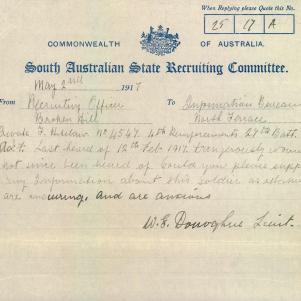 When Replying please Quote this No.
25 17 A
COMMONWEALTH OF AUSTRALIA.
South Australian State Recruiting Committee.
May 2nd 1917
From Recruiting Officer To Information Bureau
Broken Hill North Terrace
Private F. No 4547. 4th Reinforcements 27th Batt.
Last heard of 12th Feb 1917. Dangerously wound
not since been heard of Could you please supp
any information about this soldier as
are enquiring, and are anxious
W. E. Donoghue Lieut.